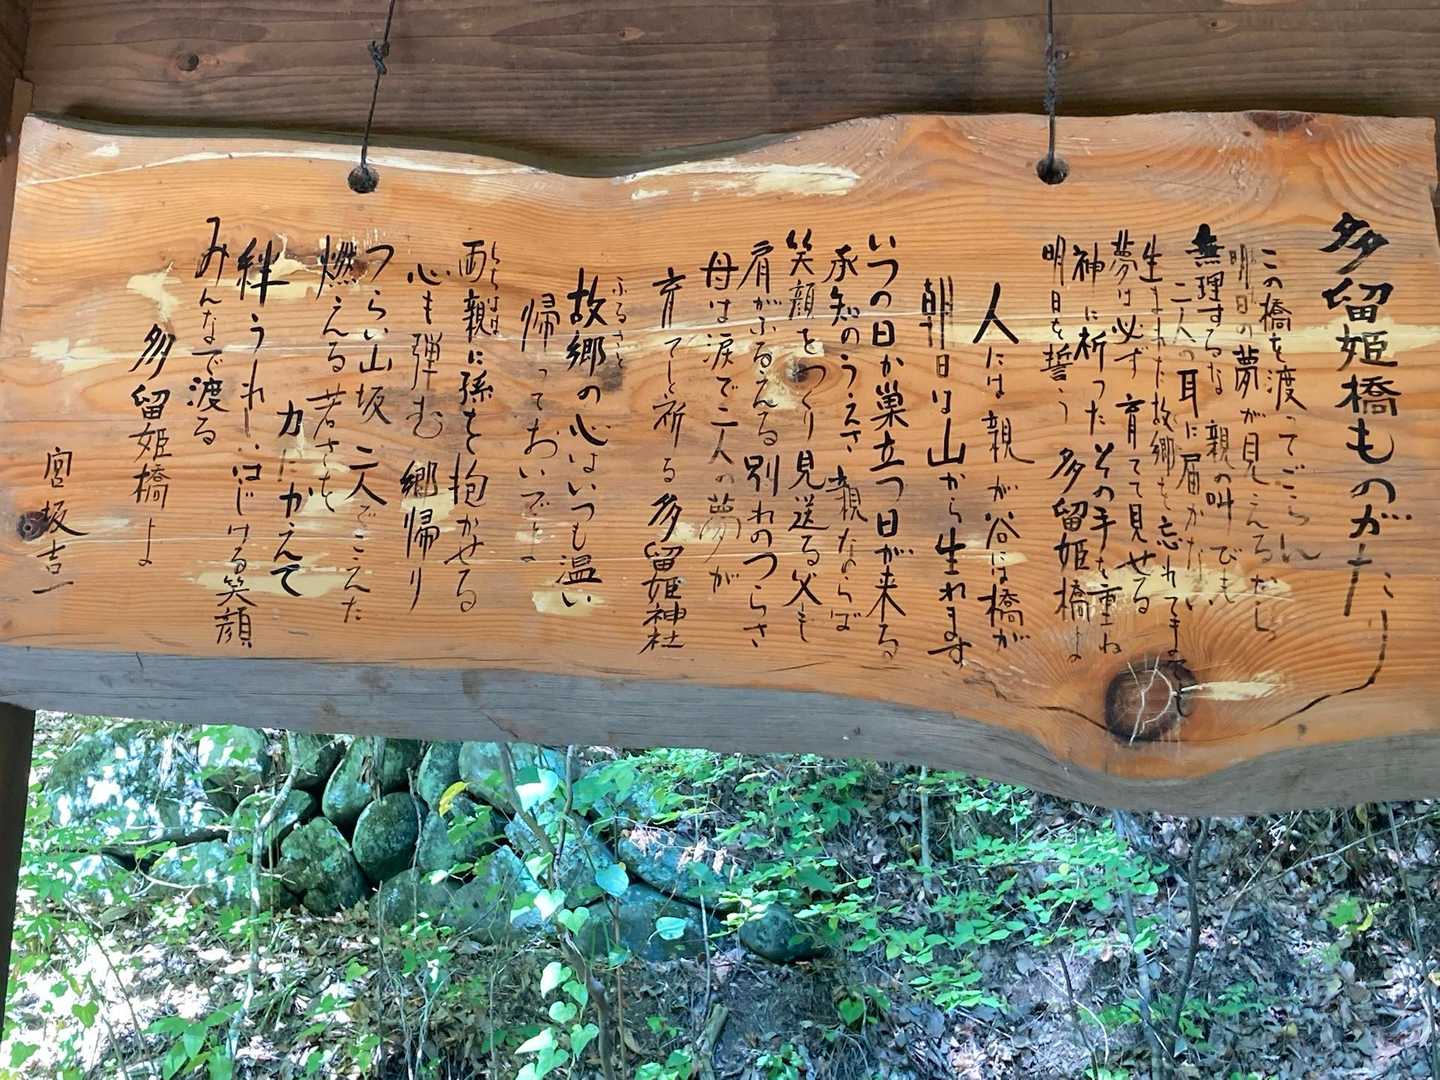 多留姫橋ものがたり
この橋を渡ってごらん
明日の夢が見えるだらう
無理するな 親の叫びも
二人の耳に届かない
生まれた故郷を忘れてまで
夢は必ず 育てて見せる
神に祈った その手を重ね
明日を誓う 多留姫橋よ
人には親が谷には橋が
朝日は山から生れます
いつの日か巣立つ日が来る
承知のうえさ 親ならば
笑顔をつくり見送る父も
肩がふるえる別れのつらさ
母は涙で二人の夢が
育てと祈る 多留姫神社
ふるさと
故郷の心はいつも温い
帰っておいでよ
両親に孫を抱かせる
心も弾む 郷帰り
つらい山坂 二人でこえた
燃える若さを
力にかえて
絆うれし はじける笑顔
みんなで渡る
多留姫橋よ
宮坂吉一